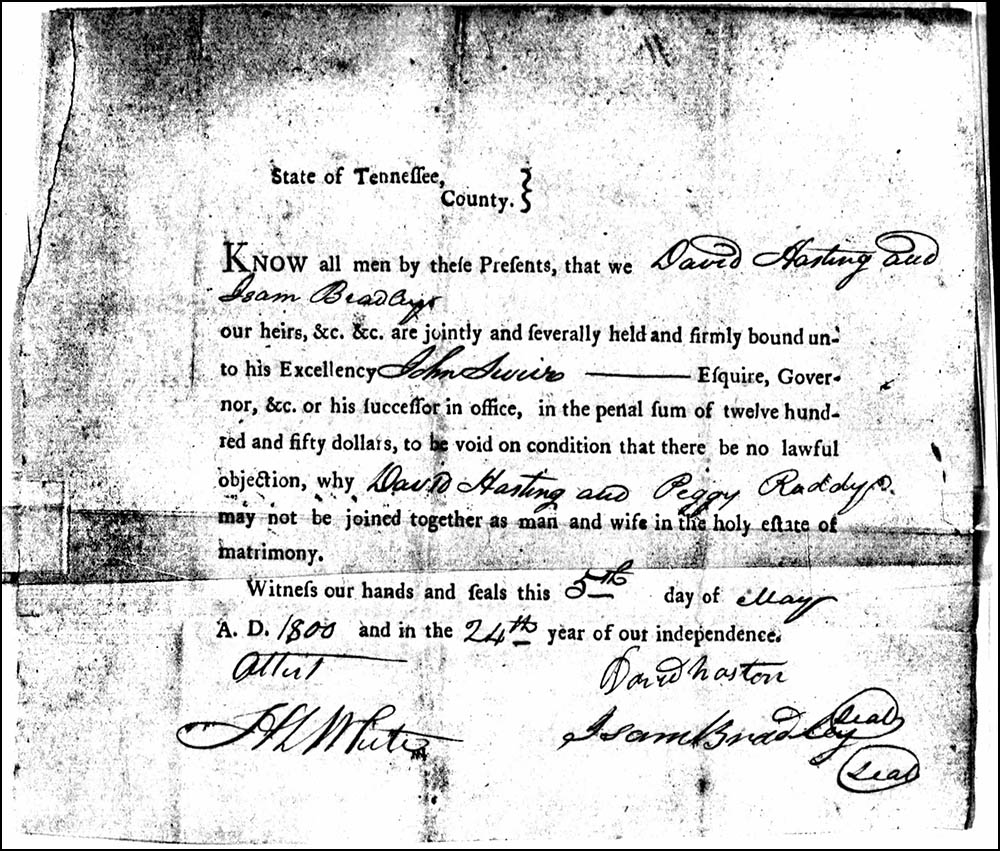 State of Tenneſſee,
County.
KNOW all men by theſe Preſents, that we David Hasting and
Isam Bradley
our heirs, &c. &c. are jointly and ſeverally held and firmly bound un-
to his Excellency John Sevier Eſquire, Gover-
nor, &c. or his ſucceſſor in office, in the penal ſum of twelve hund-
red and fifty dollars, to be void on condition that there be no lawful
objection, why David Hasting and Peggy Roddye
may not be joined together as man and wife in the holy eſtate of
matrimony.
Witneſs our hands and ſeals this 5th day of May
A. D. 1800 and in the 24th year of our independence.
Attest David haston
Isam Bradley Seal
Seal